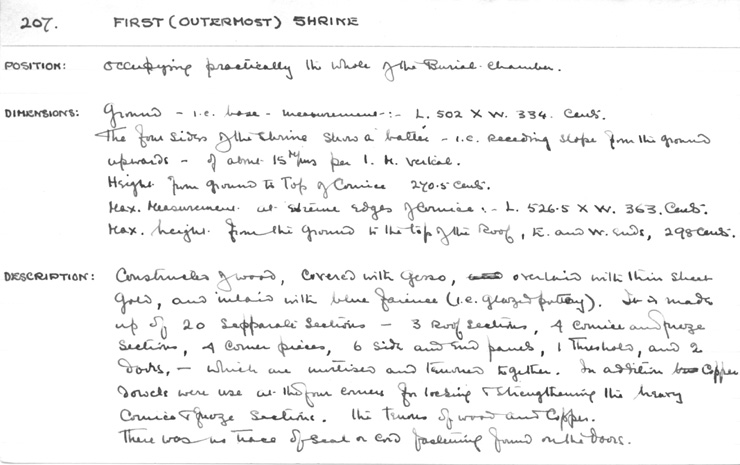 207. FIRST (OUTERMOST) SHRINE
POSITION: Occupying practically the whole of the Burial-Chamber.
DIMENSIONS: Ground – i.e. base – measurement:- L. 502 X W. 334. Cents.
The four sides of the Shrine show a batter – i.e. receding slope from the ground
upwards – of about 15 M/ms per 1. M. vertical.
Height from ground to Top of Cornice 270.5 Cents.
Max. Measurement at extreme edges of Cornice:- L. 526.5 X W. 363. Cents.
Max. height from the Ground to the top of the Roof, E. and W. ends, 298 Cents.
DESCRIPTION: Constructed of wood, covered with Gesso, overlaid with thin sheet
Gold, and inlaid with blue faience (i.e. glazed pottery). It is made
up of 20 Sepparate Sections – 3 Roof Sections, 4 Cornice and frieze
Sections, 4 Corner pieces, 6 Side and End panels, 1 Threshold, and 2
Doors, – which are mortised and tenoned together. In addition Copper
Dowels were use at the four corners for locking & strengthening the heavy
Cornice & frieze Sections. The tenons of wood and Copper.
There was no trace of Seal or Cord fastening found on the doors.